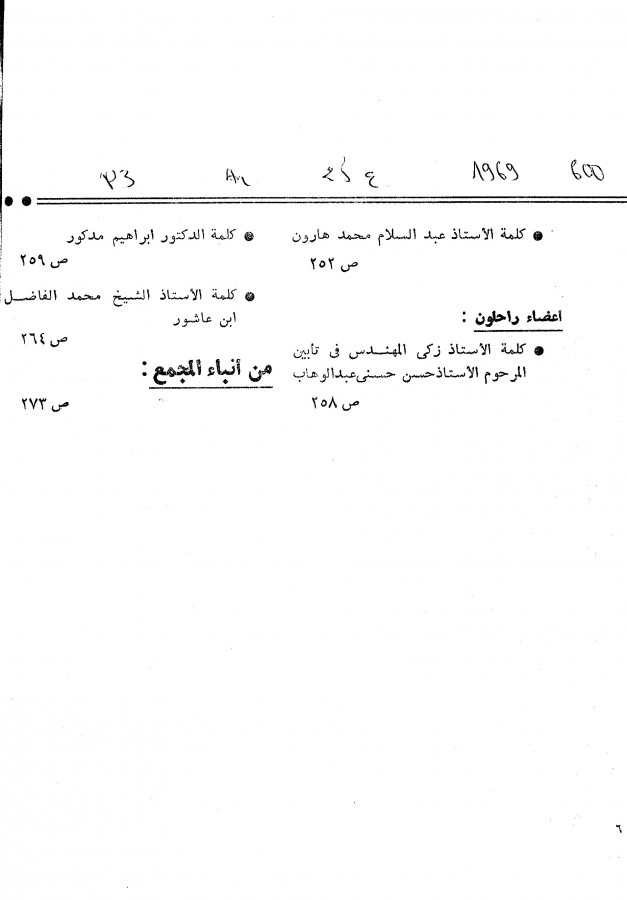 1969
● كلمة الأستاذ عبد السلام محمد هارون
ص ٢٥٢
اعضاء راحلون :
● كلمة الأستاذ زكى المهندس فى تأبين
المرحوم الأستاذ حسن حسنى عبدالوهاب
ص ٢٥٨
● كلمة الدكتور ابراهيم مدكور
ص ٢٥٩
● كلمة الأستاذ الشيخ محمد الفاضل
ابن عاشور
ص ٢٦٤
من أنباء المجمع :
ص ٢٧٣
٦